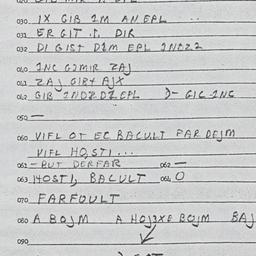 030. IX GIB IM AN EPL
031 ER GIT .1. DIR
032 DI GIST DIM EPL INDZZ
040 INC GIMIR ZAJ
041 ZAJ GIBT AJX
042 GIB INDZDZ EPL }- GIC INC
050. —
060 VIFL OT EC BACULT FAR DEJM
VIFL HOSTI...
061 — BUT DERFAR 062 —
063 HOSTI, BACULT 064 O
070 FARFOULT
080 A BOJM A HOJ3XE BOJM BAJ
090